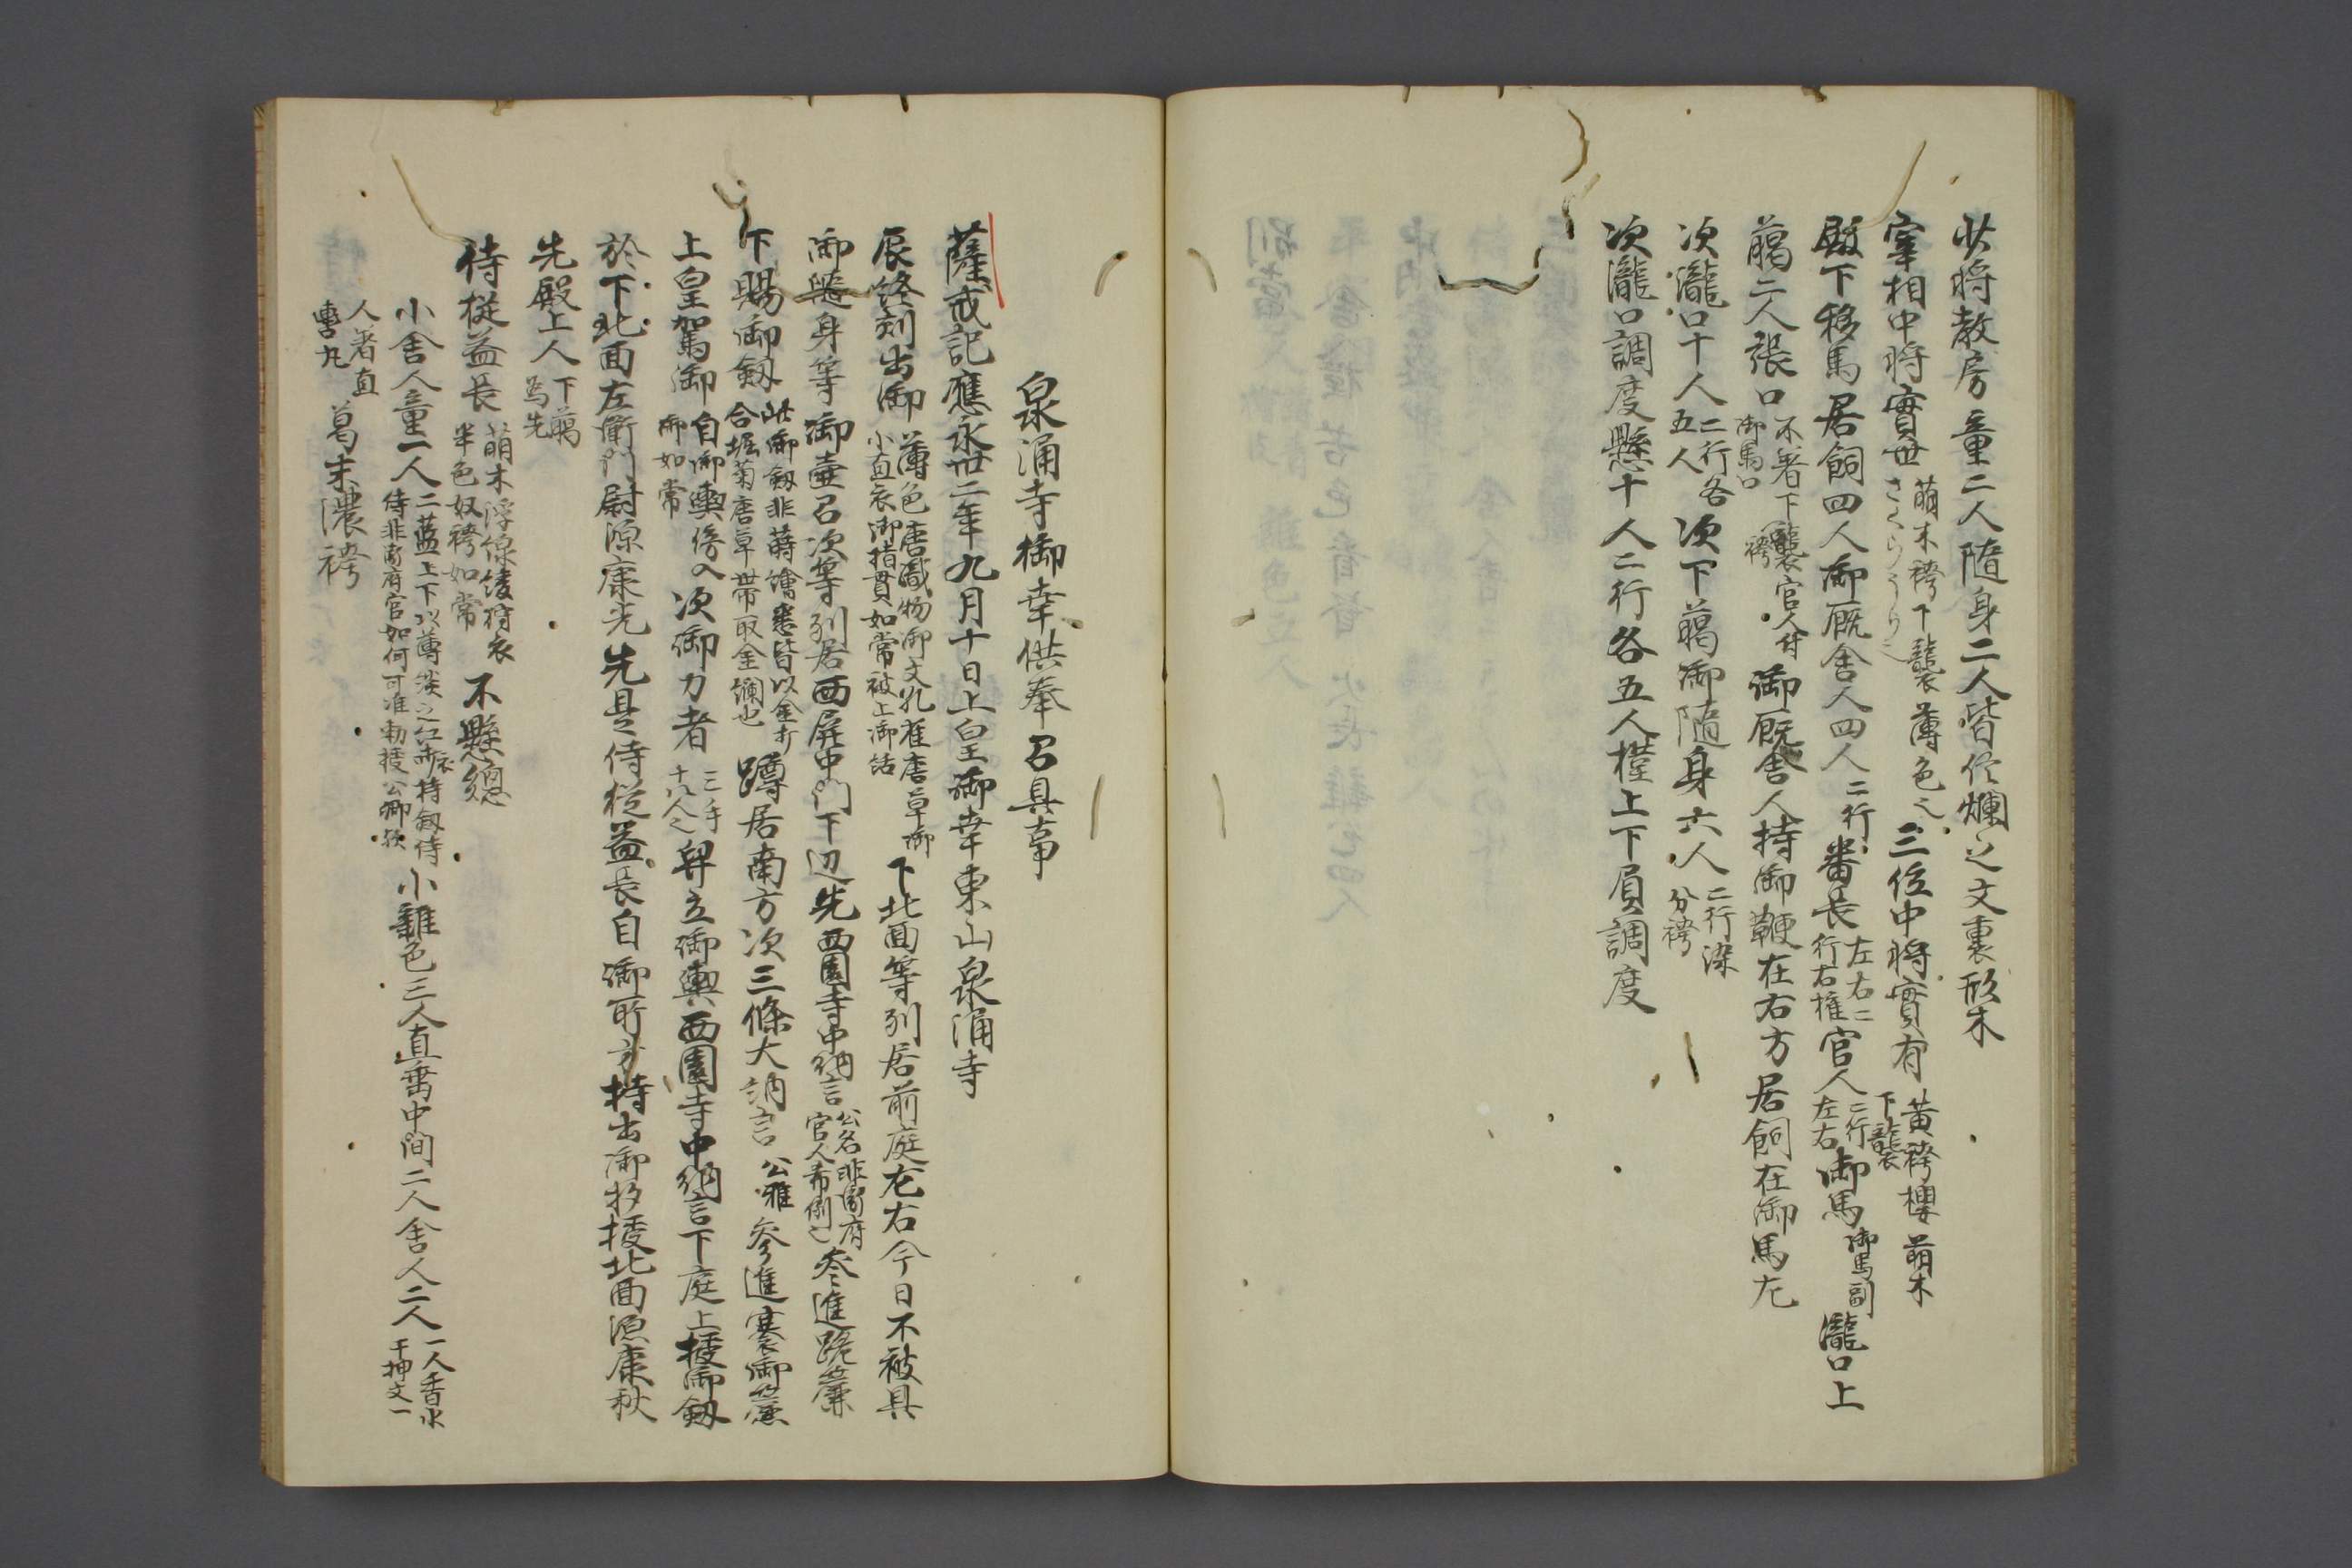 少将教房童二人随身二人皆任爛之文裏形木
宰相中将實世萌木袴下襲さくらうり之薄色之三位中将實有黄袴櫻萌木下襲
殿下移馬居飼四人御厩舎人四人二行番長左右二行右権官人二行左右御馬御馬副瀧口上
﨟二人張口不着下襲袴官人付御馬口御厩舎人持御鞭在右方居飼在御馬左
次瀧口十人二行各五人次下﨟御随身六人二行染分袴
次瀧口調度懸十人二行各五人権上下員調度
泉涌寺御幸供奉召具事
薩戒記應永卅二年九月十日上皇御幸東山泉涌寺
辰終刻出御薄色唐織物御文孔雀唐草御小直衣御指貫如常被上御括下北面等列居前庭左右今日不被具
御随身等御壷召次等列居西屏中門下辺先西園寺中納言公名非衛府官人希例之参進跪簾
下賜御釼此御釼非蒔繪悉皆以金打合堀菊唐草世帯取金襴也蹲居南方次三條大納言公雅参進褰御簾
上皇駕御自御輿傍入御如常次御力者三手十八人之舁立御輿西園寺中納言下庭上授御釼
於下北面左衛門尉源康光先是侍従益長自御所方持出御杉授北面源康秋
先殿上人下﨟為先
侍従益長萌木浮線綾狩衣半色奴袴如常不懸總
小舎人童一人二藍上下以薄淡之紅赤衣持釼侍侍非衛府官如何可准勅授公卿歟小雜色三人直垂中間二人舎人二人一人手香水干押文一
人着直垂九葛末濃袴